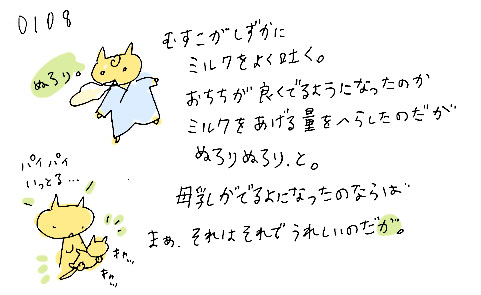 0108
むすこがしずかに
ミルクをよく吐く。
おちちが良くでるようになったのか
ミルクをあげる量をへらしたのだが
ぬろりぬろり、と。
母乳がでるよになったのならば
まぁ、それはそれでうれしいのだが。
ぬろり。
パイパイ
いっとる…
キャッ
キャッ